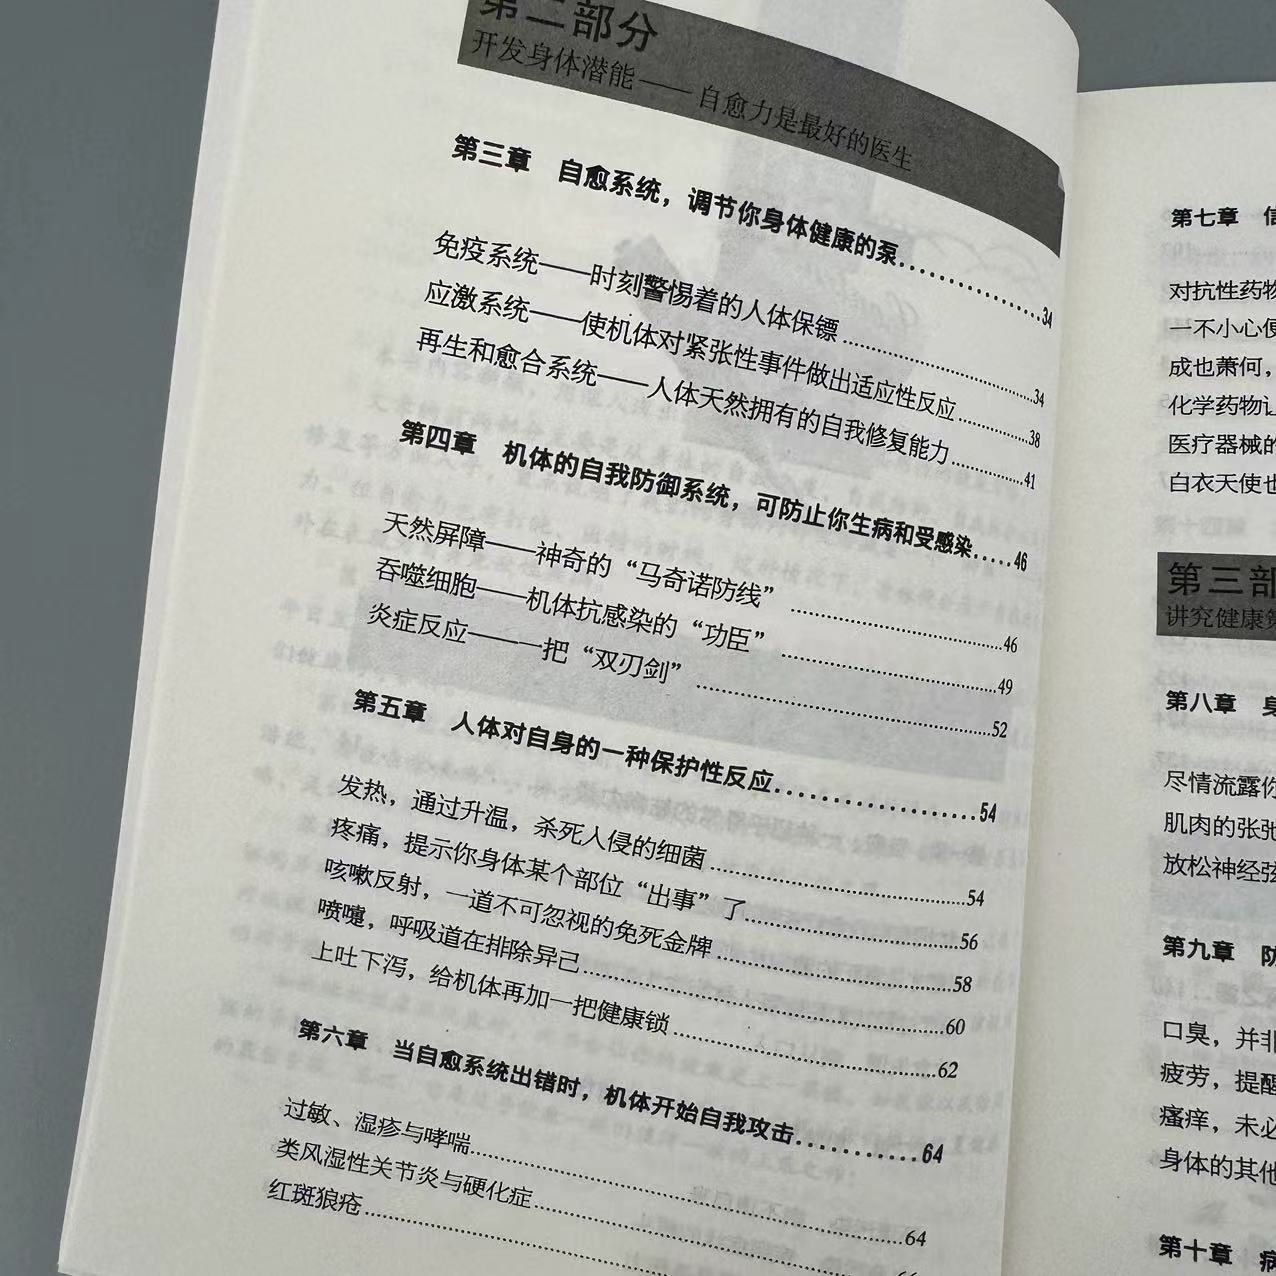 第二部分
开发身体潜能——自愈力是最好的医生
第三章 自愈系统，调节你身体健康的泵……34
免疫系统——时刻警惕着的人体保镖……34
应激系统——使机体对紧张性事件做出适应性反应……38
再生和愈合系统——人体天然拥有的自我修复能力……41
第四章 机体的自我防御系统，可防止你生病和受感染……46
天然屏障——神奇的“马奇诺防线”……46
吞噬细胞——机体抗感染的“功臣”……49
炎症反应——一把“双刃剑”……52
第五章 人体对自身的一种保护性反应……54
发热，通过升温，杀死人侵的细菌……54
疼痛，提示你身体某个部位“出事”了……56
咳嗽反射，一道不可忽视的免死金牌……58
喷嚏，呼吸道在排除异己……60
上吐下泻，给机体再加一把健康锁……62
第六章 当自愈系统出错时，机体开始自我攻击……64
过敏、湿疹与哮喘……64
类风湿性关节炎与硬化症……
红斑狼疮……
第七章
对抗性药物
一不小心便
成也萧何，
化学药物让
医疗器械的
白衣天使也
第三部
讲究健康
第八章 身
尽情流露你
肌肉的张弛
放松神经弦
第九章 防
口臭，并非
疲劳，提醒
瘙痒，未必
身体的其他
第十章 病